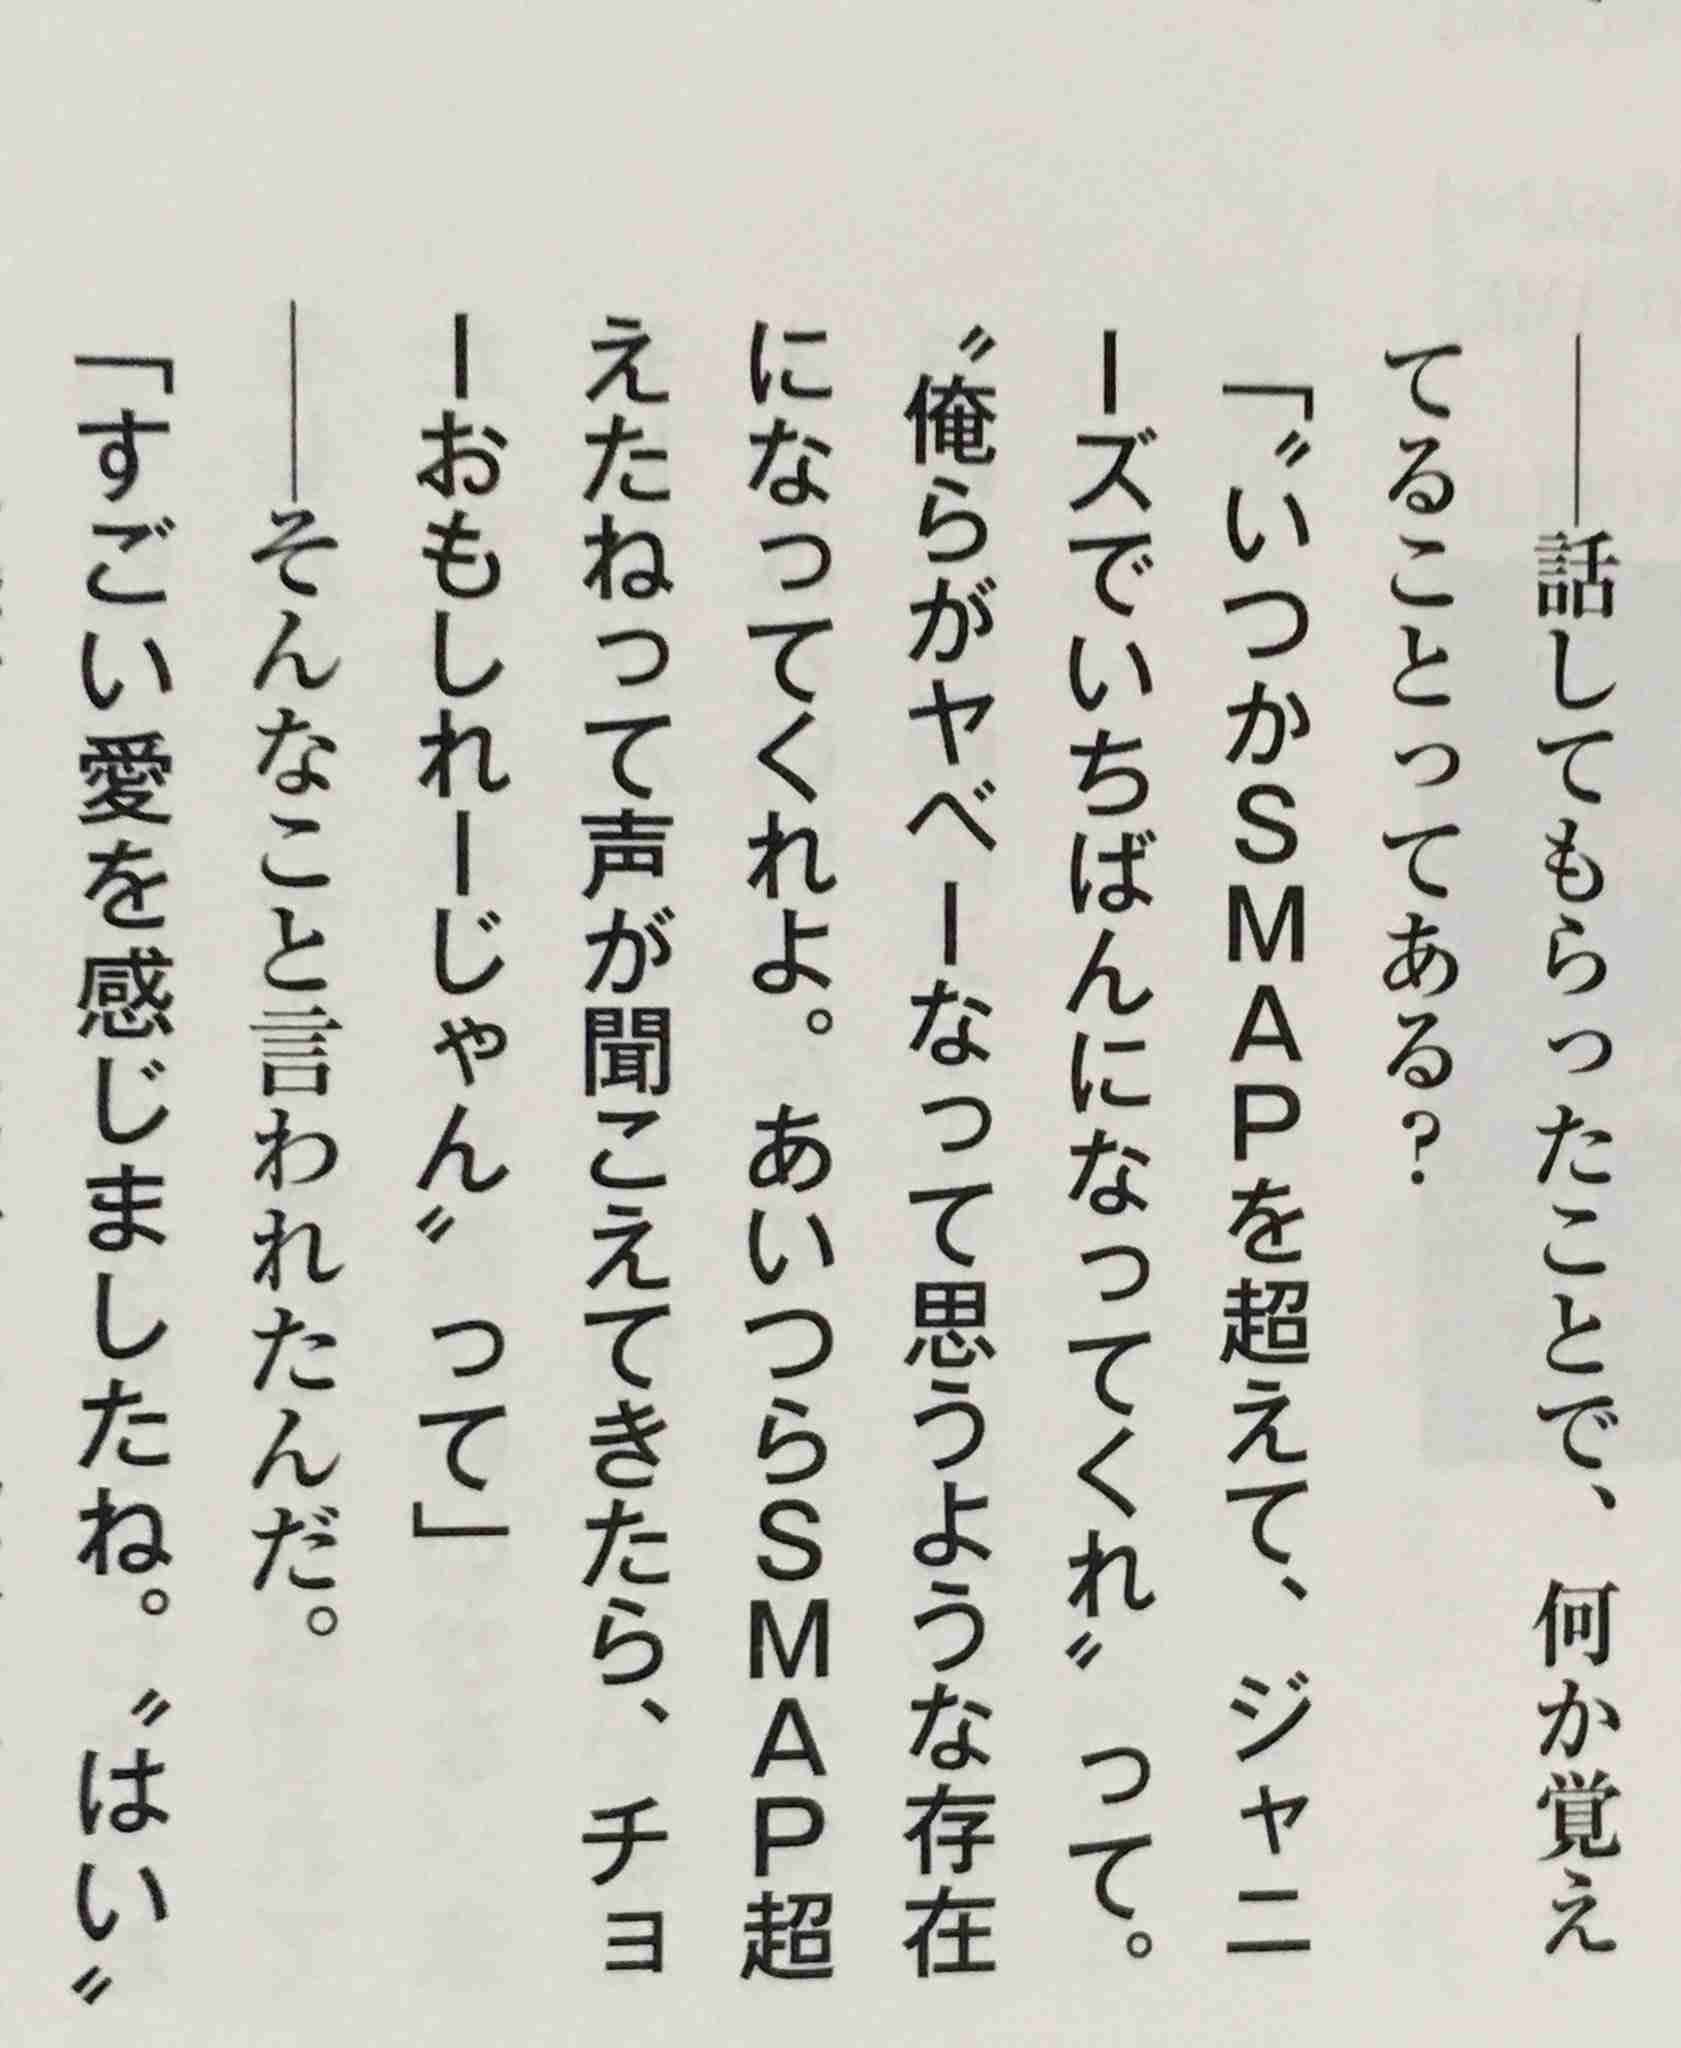 ――話してもらったことで、何か覚え
てることってある？
「〝いつかＳＭＡＰを超えて、ジャニ
ーズでいちばんになってくれ〟って。
〝俺らがヤベーなって思うような存在
になってくれよ。あいつらＳＭＡＰ超
えたねって声が聞こえてきたら、チョ
ーおもしれーじゃん〟って」
――そんなこと言われたんだ。
「すごい愛を感じましたね。〝はい〟